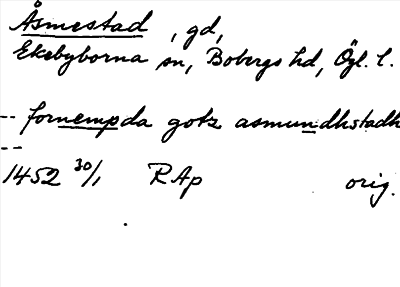 Åsmestad, gd,
Ekebyborna sn, Bobergs hd, Ögl. l.
-- fornempda gotz asmundhstadh
--
1452 30/1 RAp orig.